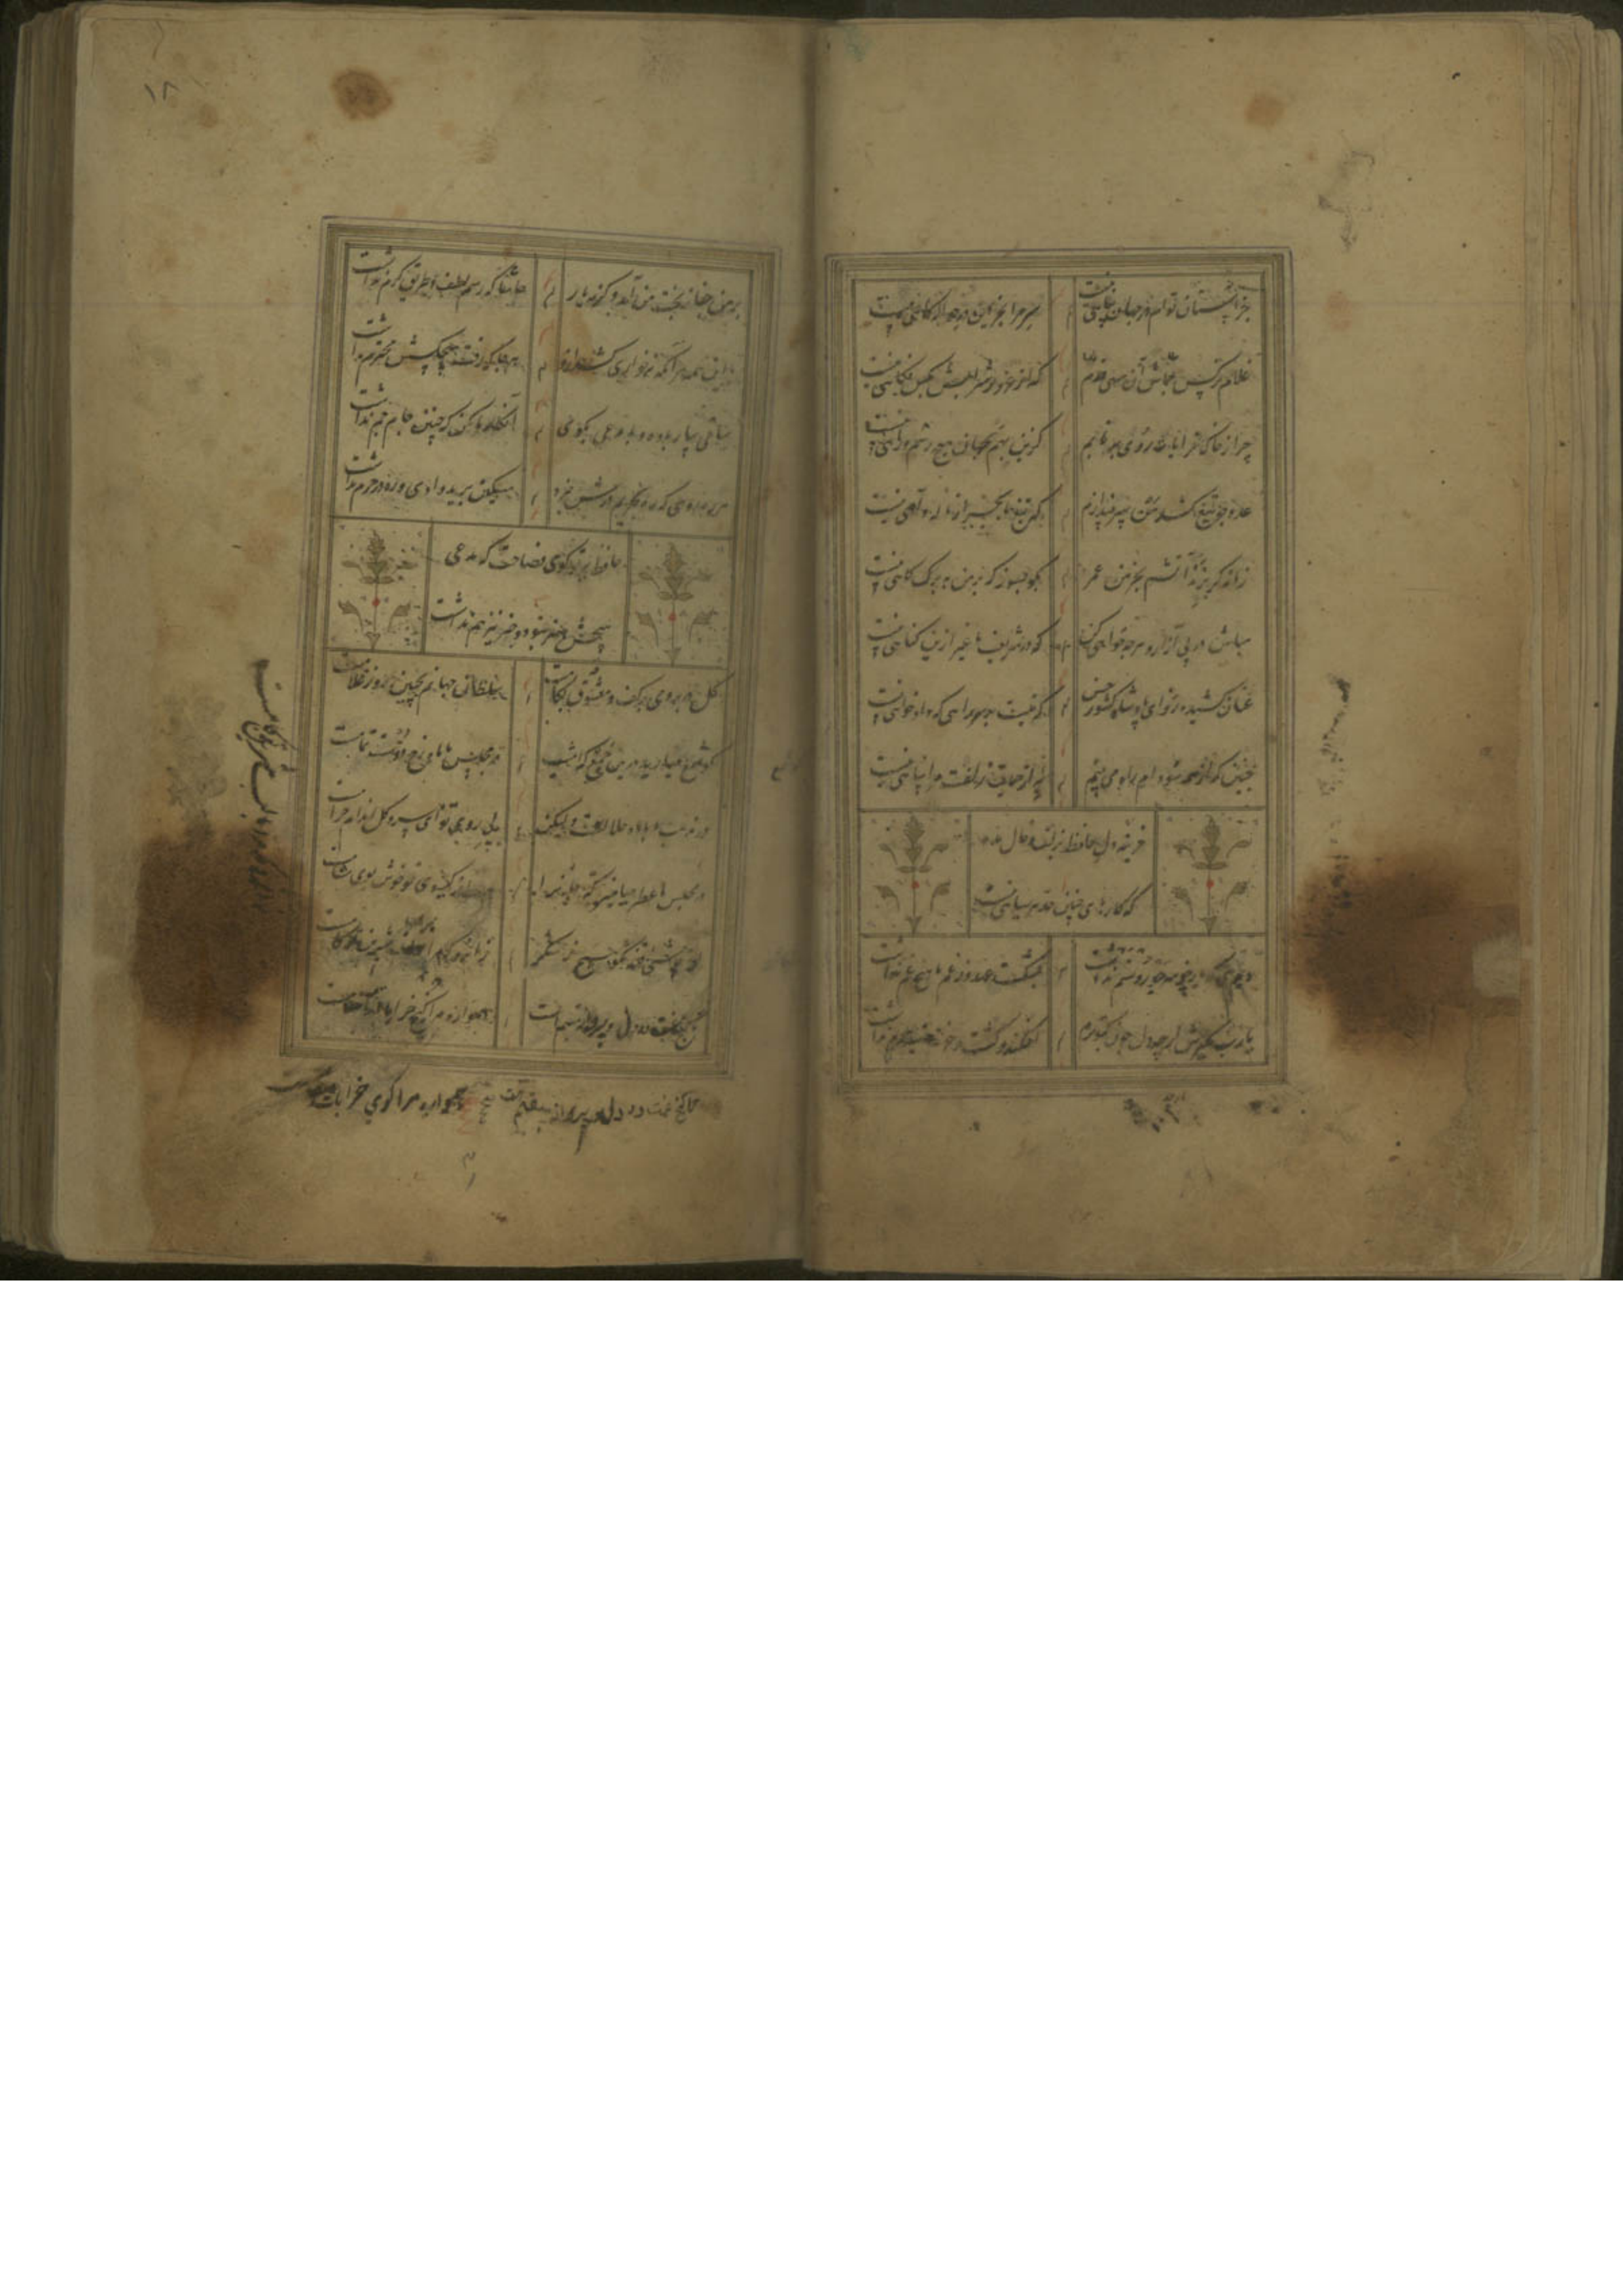 جز آستان توام در جهان پناهی نیست
سر مرا بجز این در حواله گاهی نیست
غلام نرکس جماش آن سهی قدم
که از شراب غرورش بکس نگاهی نیست
چرا ز خاک خرابات روی برتابم
کزین بهم بجهان هیچ رسم و راهی نیست
عدو چو تیغ کشد من سپر بیندازم
که تیغ ما بجز از ناله و آهی نیست
زمانه کر بزند آتشم بخرمن عمر
بکو بسوز که بر من به برک کاهی نیست
مباش در پی آزار و هرچه خواهی کن
که در شریعت ما غیر ازین کناهی نیست
عنان کشیده رو ای پادشاه کشور حسن
که نیست بر سر راهی که دادخواهی نیست
چنین که از همه سو دام راه می بینم
به از حمایت زلفت مرا پناهی نیست
خزینه دل حافظ بزلف و خال مده
که کارهای چنین حد هر سیاهی نیست
دیدی که یار جز سر جور و ستم نداشت
بشکست عهد وز غم ما هیچ غم نداشت
یارب مکیرش ارچه دل چون کبوترم
افکند و کشت و حرمت صید حرم نداشت
۱۸
بر من جفا ز بخت من آمد و کرنه یار
حاشا که رسم لطف و طریق کرم نداشت
با این همه هر آنکه نه خواری کشید ازو
هر جا که رفت هیچکسش محترم نداشت
ساقی بیار باده و با مدعی بکوی
انکار ما مکن که چنین جام جم نداشت
هر راهرو که ره بحریم درش نبرد
مسکین برید وادی و ره در حرم نداشت
حافظ ببر تو کوی فصاحت که مدعی
هیچش هنر نبود و خبر نیز هم نداشت
کل در بر و می بر کف و معشوق بکامست
سلطان جهانم بچنین روز غلامست
کو شمع میارید درین جمع که امشب
در مجلس ما ماه رخ دوست تمامست
در مذهب ما باده حلالست ولیکن
بی روی تو ای سرو کل اندام حرامست
در مجلس ما عطر میامیز که جان را
هر دم ز کیسوی تو خوش بوی مشامست
از چاشنی قند مکو هیچ و ز شکر
زانرو که مرا از لب شیرین تو کامست
تا کنج غمت در دل ویرانه مقیم است
همواره مرا کنج خرابات مقامست
تا کنج غمت در دل ویرانه مقیم است
همواره مرا کوی خرابات